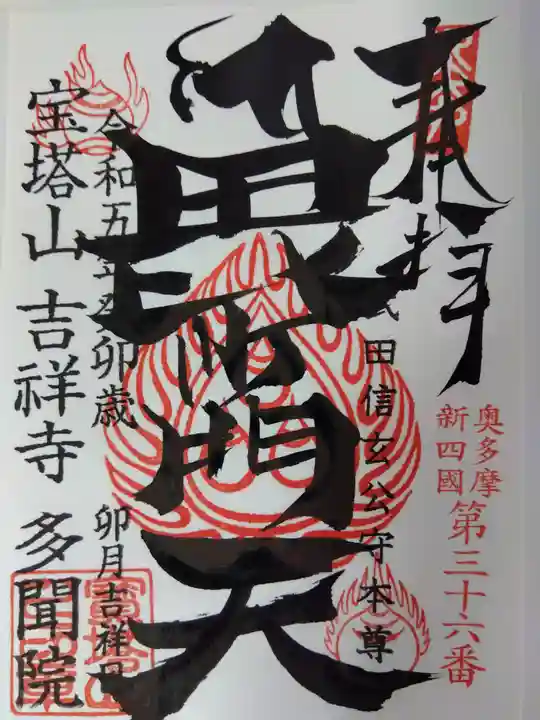 奉拝
奥多摩
新四國
第三十六番
武田信玄公守本尊
毘沙門天
令和五年癸卯歳 卯月吉祥日
宝塔山 吉祥寺 多聞院